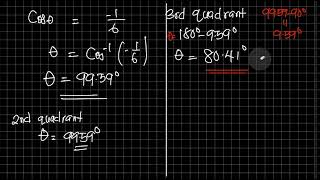 Cosθ = -1/6
θ = Cos⁻¹(-1/6)
θ = 99.59°
2nd quadrant
θ = 99.59°
3rd quadrant
θ = 180° - 9.59°
θ = 80.41°
99.59-90°
=
9.59°